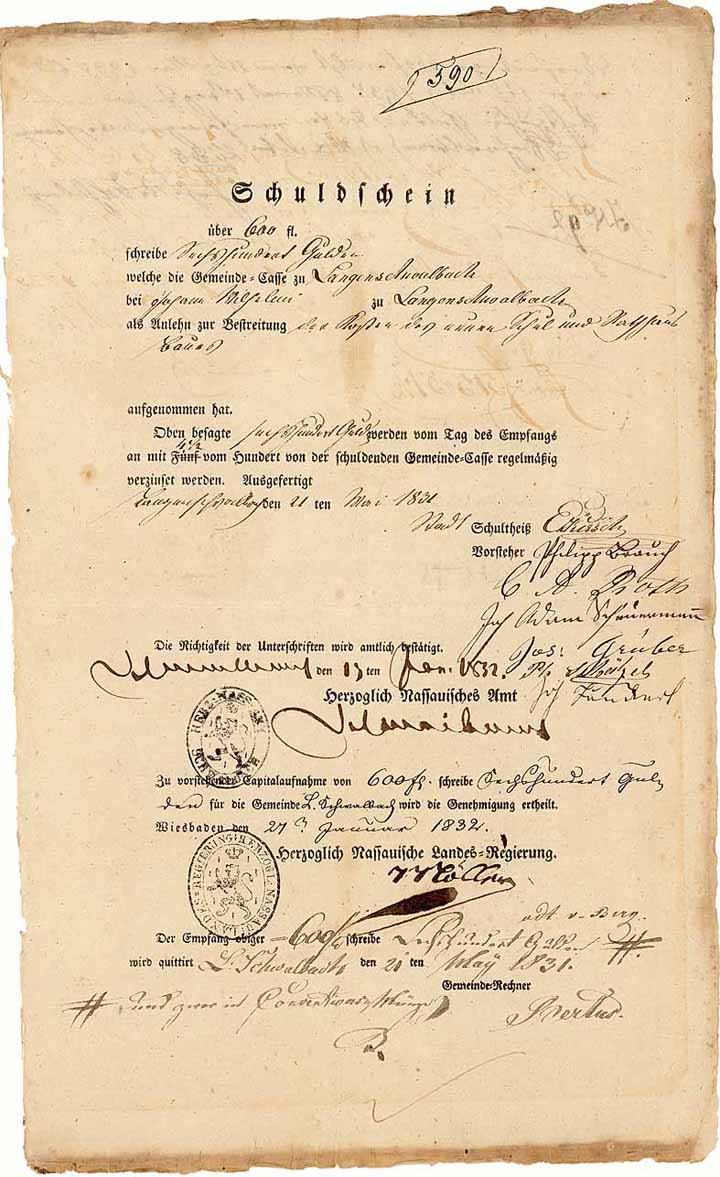 590
Schuldschein
über 600 fl.
schreibe Sechshundert Gulden
welche die Gemeinde-Casse zu Langenschwalbach
bei Johann zu Langenschwalbach
als Anlehn zur Bestreitung der Kosten des neuen Schul und Rathhaus
Baues
aufgenommen hat.
Oben besagte sechshundert Guld werden vom Tag des Empfangs
4 1/2
an mit Fünf vom Hundert von der schuldenden Gemeinde-Casse regelmäßig
verzinset werden. Ausgefertigt
Langenschwalbach den 21 ten Mai 1831
Stadt Schultheiß
Vorsteher Philipp Brauch
C. A. Roth
Joh Adam Scheuermann
Die Richtigkeit der Unterschriften wird amtlich bestätigt. Jos: Grüber
den 13 ten Jan. 1832.
Herzoglich Nassauisches Amt
Zu vorstehender Capitalaufnahme von 600 fl. schreibe Sechshundert Gul
den für die Gemeinde L. Schwalbach wird die Genehmigung ertheilt.
Wiesbaden den 27 Januar 1832.
Herzoglich Nassauische Landes-Regierung.
Möller
vdt v. Berg.
Der Empfang obiger 600 fl. schreibe Sechshundert Gulden #.
wird quittirt L. Schwalbach den 21 ten May 1831.
Gemeinde-Rechner
# und zwar in Conventions Münze